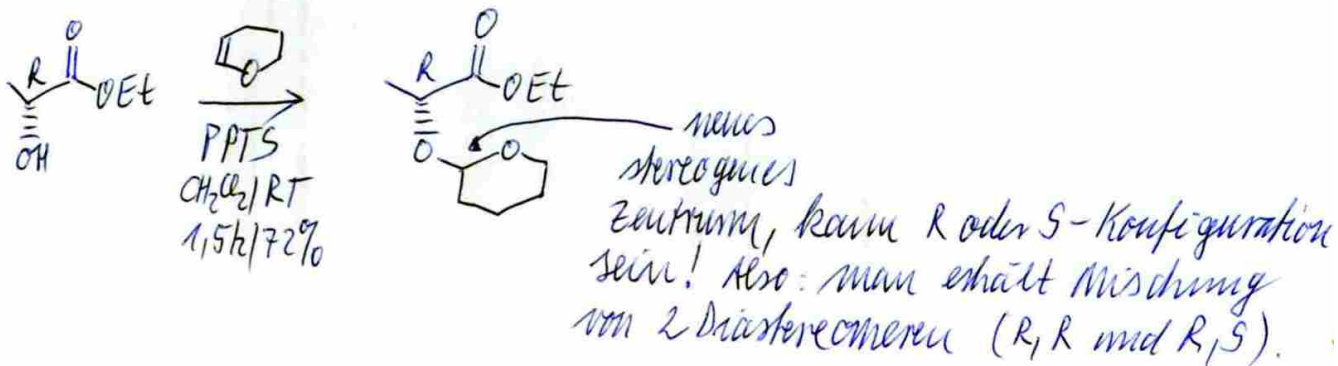 O
O
R
OEt
OH
O
PPTS
CH₂Cl₂/RT
1,5h/72%
R
OEt
O
O
neues
stereogenes
Zentrum, kann R oder S-Konfiguration
sein! Also: man erhält Mischung
von 2 Diastereomeren (R,R und R,S).